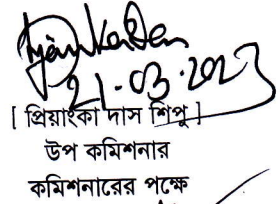 21-03-2023
[ প্রিয়াংকা দাস শিপু ]
উপ কমিশনার
কমিশনারের পক্ষে